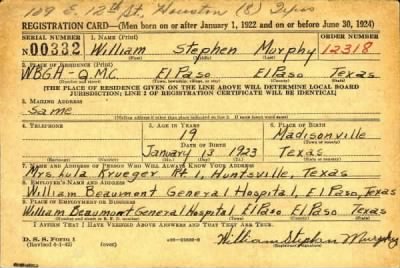 109 E. 12th St. Houston (8) Texas
REGISTRATION CARD—(Men born on or after January 1, 1922 and on or before June 30, 1924)
SERIAL NUMBER 1. NAME (Print) ORDER NUMBER
N00332 William Stephen Murphy 12318
(First) (Middle) (Last)
2. PLACE OF RESIDENCE (Print)
WBGH-Q.M.C. El Paso El Paso Texas
(Number and street) (Town, township, village, or city) (County) (State)
[THE PLACE OF RESIDENCE GIVEN ON THE LINE ABOVE WILL DETERMINE LOCAL BOARD
JURISDICTION; LINE 2 OF REGISTRATION CERTIFICATE WILL BE IDENTICAL]
3. MAILING ADDRESS
Same
4. TELEPHONE 5. AGE IN YEARS 6. PLACE OF BIRTH
19 Madisonville
DATE OF BIRTH
January 13 1923 Texas
(Exchange) (Number) (Mo.) (Day) (Yr.) (State or country)
7. NAME AND ADDRESS OF PERSON WHO WILL ALWAYS KNOW YOUR ADDRESS
Mrs. Lula Krueger Rt 1, Huntsville, Texas
8. EMPLOYER'S NAME AND ADDRESS
William Beaumont General Hospital, El Paso, Texas
9. PLACE OF EMPLOYMENT OR BUSINESS
William Beaumont General Hospital El Paso El Paso Texas
(Number and street or R. F. D. number) (Town) (County) (State)
I AFFIRM THAT I HAVE VERIFIED ABOVE ANSWERS AND THAT THEY ARE TRUE.
D. S. S. Form 1
William Stephen Murphy